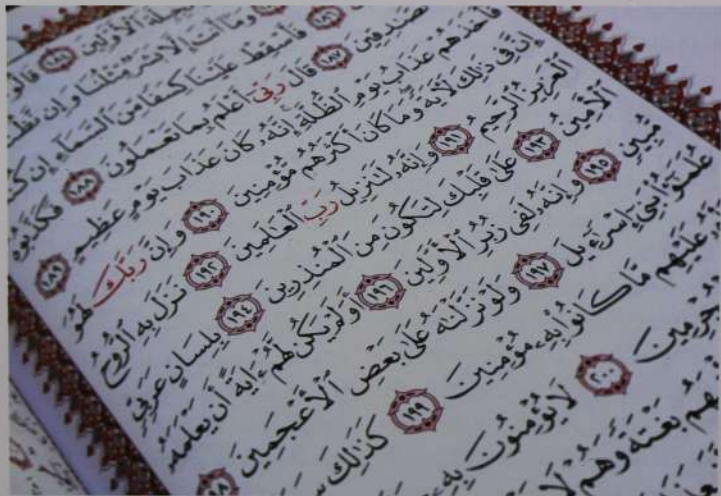 ـبِلَّةَ ٱلْأَوَّلِينَ ١٨٤ قَالُو
وَمَآ أَنتَ إِلَّا بَشَرٌ مِّثْلُنَا وَإِن نَّظُنُّ
١٨٦ فَأَسْقِطْ عَلَيْنَا كِسَفًا مِّنَ ٱلسَّمَآءِ إِن كُنـ
ٱلصَّٰدِقِينَ ١٨٧ قَالَ رَبِّىٓ أَعْلَمُ بِمَا تَعْمَلُونَ ١٨٨ فَكَذَّبُوهُ
فَأَخَذَهُمْ عَذَابُ يَوْمِ ٱلظُّلَّةِ إِنَّهُۥ كَانَ عَذَابَ يَوْمٍ عَظِيمٍ ١٨٩
إِنَّ فِى ذَٰلِكَ لَءَايَةً وَمَا كَانَ أَكْثَرُهُم مُّؤْمِنِينَ ١٩٠ وَإِنَّ رَبَّكَ لَهُوَ
ٱلْعَزِيزُ ٱلرَّحِيمُ ١٩١ وَإِنَّهُۥ لَتَنزِيلُ رَبِّ ٱلْعَٰلَمِينَ ١٩٢ نَزَلَ بِهِ ٱلرُّوحُ
ٱلْأَمِينُ ١٩٣ عَلَىٰ قَلْبِكَ لِتَكُونَ مِنَ ٱلْمُنذِرِينَ ١٩٤ بِلِسَانٍ عَرَبِىٍّ
مُّبِينٍ ١٩٥ وَإِنَّهُۥ لَفِى زُبُرِ ٱلْأَوَّلِينَ ١٩٦ أَوَلَمْ يَكُن لَّهُمْ ءَايَةً أَن يَعْلَمَهُۥ
عُلَمَٰٓؤُا۟ بَنِىٓ إِسْرَٰٓءِيلَ ١٩٧ وَلَوْ نَزَّلْنَٰهُ عَلَىٰ بَعْضِ ٱلْأَعْجَمِينَ ١٩٨
عَلَيْهِم مَّا كَانُوا۟ بِهِۦ مُؤْمِنِينَ ١٩٩ كَذَٰلِكَ
ـجْرِمِينَ ٢٠٠ لَا يُؤْمِنُونَ بِهِۦ
ـيَهُم بَغْتَةً وَهُمْ لَا